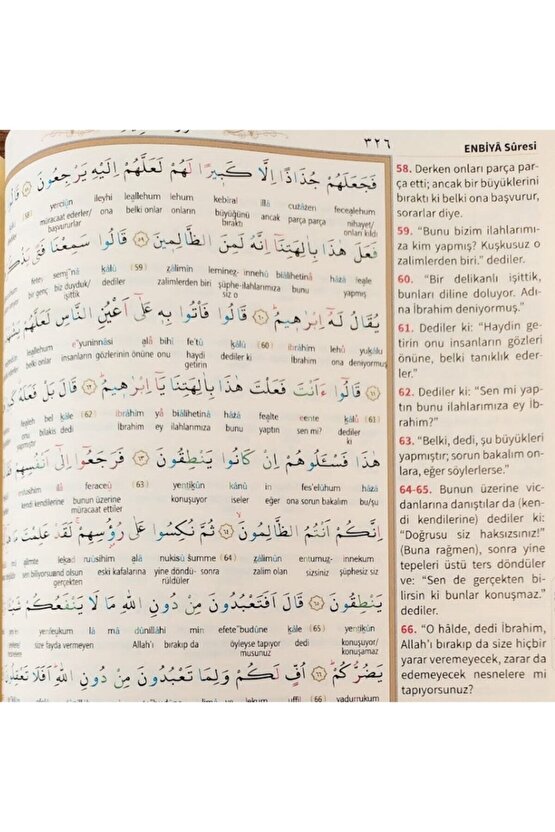 ٣٢٦
ENBİYÂ Sûresi
فَجَعَلَهُمْ جُذَاذًا اِلَّا كَبٖيرًا لَهُمْ لَعَلَّهُمْ اِلَيْهِ يَرْجِعُونَ ﴿٥٨﴾ قَالُوا
feceǎlehum cuẕâẕen illâ kebîral lehum leallehum ileyhi yerciǔn
nihayet/ onları kıldı parça parça ancak büyüğünü bıraktı onlar belki ona müracaat ederler/ başvururlar (58)
فَعَلَ هٰذَا بِاٰلِهَتِنَٓا اِنَّهُ لَمِنَ الظَّالِمٖينَ ﴿٥٩﴾ قَالُوا سَمِعْنَا فَتًى
feǎle hâẕâ biâlihetinâ innehû leminez- zâlimîn (59) kâlû semiǎ'nâ feten
yapmış bunu ilahlarımıza şüphe-siz o zalimlerden biri dediler biz duyduk/ işittik bir genç
يُقَالُ لَهُٓ اِبْرٰهٖيمُ ﴿٦٠﴾ قَالُوا فَأْتُوا بِهٖ عَلٰٓى اَعْيُنِ النَّاسِ لَعَلَّهُمْ
yukâlu lehû ibrâhîm (60) kâlû fe'tû bihî ǎlâ e'yuninnâsi leallehum
ona deniyormuş İbrahim dediler ki haydi getirin onu insanların gözlerinin önüne belki onlar
﴿٦١﴾ قَالُٓوا ءَاَنْتَ فَعَلْتَ هٰذَا بِاٰلِهَتِنَا يَٓا اِبْرٰهٖيمُ ﴿٦٢﴾ قَالَ بَلْ فَعَلَهُ
(61) kâlû eente feǎlte hâẕâ biâlihetinâ yâ ibrâhîm (62) kâle bel feǎleh
dediler ki sen mi? yaptın bunu ilahlarımıza ey İbrahim dedi bilakis onu yapmıştır
هٰذَا فَسْـَٔلُوهُمْ اِنْ كَانُوا يَنْطِقُونَ ﴿٦٣﴾ فَرَجَعُٓوا اِلٰٓى اَنْفُسِهِمْ
hâẕâ fes'elûhum in kânû yentikûn (63) feraceǔ ilâ enfusihim
bu/şu ona sorun bakalım eğer iseler konuşuyor bunun üzerine müracaat ettiler kendi kendilerine
اِنَّكُمْ اَنْتُمُ الظَّالِمُونَ ﴿٦٤﴾ ثُمَّ نُكِسُوا عَلٰى رُؤُسِهِمْ لَقَدْ عَلِمْتَ مَا
innekum entumuz- zâlimûn (64) summe nukisû ǎlâ ruûsihim lekad ǎlimte mâ
şüphesiz siz sizsiniz zalim olan sonra yine döndü-rüldüler eski kafalarına
يَنْطِقُونَ ﴿٦٥﴾ قَالَ اَفَتَعْبُدُونَ مِنْ دُونِ اللّٰهِ مَا لَا يَنْفَعُكُمْ
yentikûn (65) kâle efete'budûne min dûnillâhi mâ lâ yenfeukum
konuşuyor/ konuşamaz dedi öyleyse tapıyor musunuz Allah'ı bırakıp da size fayda vermeyen
يَضُرُّكُمْ ﴿٦٦﴾ اُفٍّ لَكُمْ وَلِمَا تَعْبُدُونَ مِنْ دُونِ اللّٰهِ اَفَلَا تَعْقِلُونَ
yadurrukum (66) uffil lekum
58. Derken onları parça par-
ça etti; ancak bir büyüklerini
bıraktı ki belki ona başvurur,
sorarlar diye.
59. "Bunu bizim ilahlarımı-
za kim yapmış? Kuşkusuz o
zalimlerden biri." dediler.
60. "Bir delikanlı işittik,
bunları diline doluyor. Adı-
na İbrahim deniyormuş."
61. Dediler ki: "Haydin ge-
tirin onu insanların gözleri
önüne, belki tanıklık eder-
ler."
62. Dediler ki: "Sen mi yap-
tın bunu ilahlarımıza ey İb-
rahim?"
63. "Belki, dedi, şu büyükleri
yapmıştır; sorun bakalım on-
lara, eğer söylerlerse."
64-65. Bunun üzerine vic-
danlarına danıştılar da (ken-
di kendilerine) dediler ki:
"Doğrusu siz haksızsınız!"
(Buna rağmen), sonra yine
tepeleri üstü ters döndüler
ve: "Sen de gerçekten bi-
lirsin ki bunlar konuşmaz."
dediler.
66. "O hâlde, dedi İbrahim,
Allah'ı bırakıp da size hiçbir
yarar veremeyecek, zarar da
edemeyecek nesnelere mi
tapıyorsunuz?